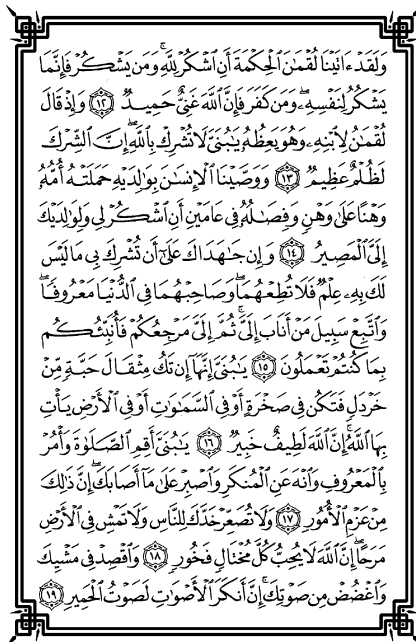 وَلَقَدۡ ءَاتَيۡنَا لُقۡمَٰنَ ٱلۡحِكۡمَةَ أَنِ ٱشۡكُرۡ لِلَّهِۚ وَمَن يَشۡكُرۡ فَإِنَّمَا
يَشۡكُرُ لِنَفۡسِهِۦۖ وَمَن كَفَرَ فَإِنَّ ٱللَّهَ غَنِيٌّ حَمِيدٞ ١٢ وَإِذۡ قَالَ
لُقۡمَٰنُ لِٱبۡنِهِۦ وَهُوَ يَعِظُهُۥ يَٰبُنَيَّ لَا تُشۡرِكۡ بِٱللَّهِۖ إِنَّ ٱلشِّرۡكَ
لَظُلۡمٌ عَظِيمٞ ١٣ وَوَصَّيۡنَا ٱلۡإِنسَٰنَ بِوَٰلِدَيۡهِ حَمَلَتۡهُ أُمُّهُۥ
وَهۡنًا عَلَىٰ وَهۡنٖ وَفِصَٰلُهُۥ فِي عَامَيۡنِ أَنِ ٱشۡكُرۡ لِي وَلِوَٰلِدَيۡكَ
إِلَيَّ ٱلۡمَصِيرُ ١٤ وَإِن جَٰهَدَاكَ عَلَىٰٓ أَن تُشۡرِكَ بِي مَا لَيۡسَ
لَكَ بِهِۦ عِلۡمٞ فَلَا تُطِعۡهُمَاۖ وَصَاحِبۡهُمَا فِي ٱلدُّنۡيَا مَعۡرُوفٗاۖ
وَٱتَّبِعۡ سَبِيلَ مَنۡ أَنَابَ إِلَيَّۚ ثُمَّ إِلَيَّ مَرۡجِعُكُمۡ فَأُنَبِّئُكُم
بِمَا كُنتُمۡ تَعۡمَلُونَ ١٥ يَٰبُنَيَّ إِنَّهَآ إِن تَكُ مِثۡقَالَ حَبَّةٖ مِّنۡ
خَرۡدَلٖ فَتَكُن فِي صَخۡرَةٍ أَوۡ فِي ٱلسَّمَٰوَٰتِ أَوۡ فِي ٱلۡأَرۡضِ يَأۡتِ
بِهَا ٱللَّهُۚ إِنَّ ٱللَّهَ لَطِيفٌ خَبِيرٞ ١٦ يَٰبُنَيَّ أَقِمِ ٱلصَّلَوٰةَ وَأۡمُرۡ
بِٱلۡمَعۡرُوفِ وَٱنۡهَ عَنِ ٱلۡمُنكَرِ وَٱصۡبِرۡ عَلَىٰ مَآ أَصَابَكَۖ إِنَّ ذَٰلِكَ
مِنۡ عَزۡمِ ٱلۡأُمُورِ ١٧ وَلَا تُصَعِّرۡ خَدَّكَ لِلنَّاسِ وَلَا تَمۡشِ فِي ٱلۡأَرۡضِ
مَرَحًاۖ إِنَّ ٱللَّهَ لَا يُحِبُّ كُلَّ مُخۡتَالٖ فَخُورٖ ١٨ وَٱقۡصِدۡ فِي مَشۡيِكَ
وَٱغۡضُضۡ مِن صَوۡتِكَۚ إِنَّ أَنكَرَ ٱلۡأَصۡوَٰتِ لَصَوۡتُ ٱلۡحَمِيرِ ١٩